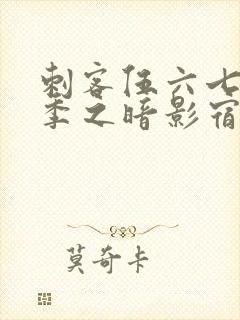 刺客伍六七
季之暗影宿
莫奇卡